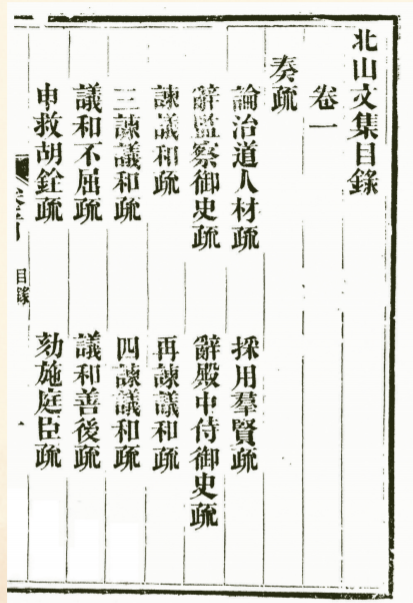 北山文集目錄
卷一
奏疏
論治道人材疏 採用羣賢疏
辭監察御史疏 辭殿中侍御史疏
諫議和疏 再諫議和疏
三諫議和疏 四諫議和疏
議和不屈疏 議和善後疏
申救胡銓疏 劾施庭臣疏
目錄